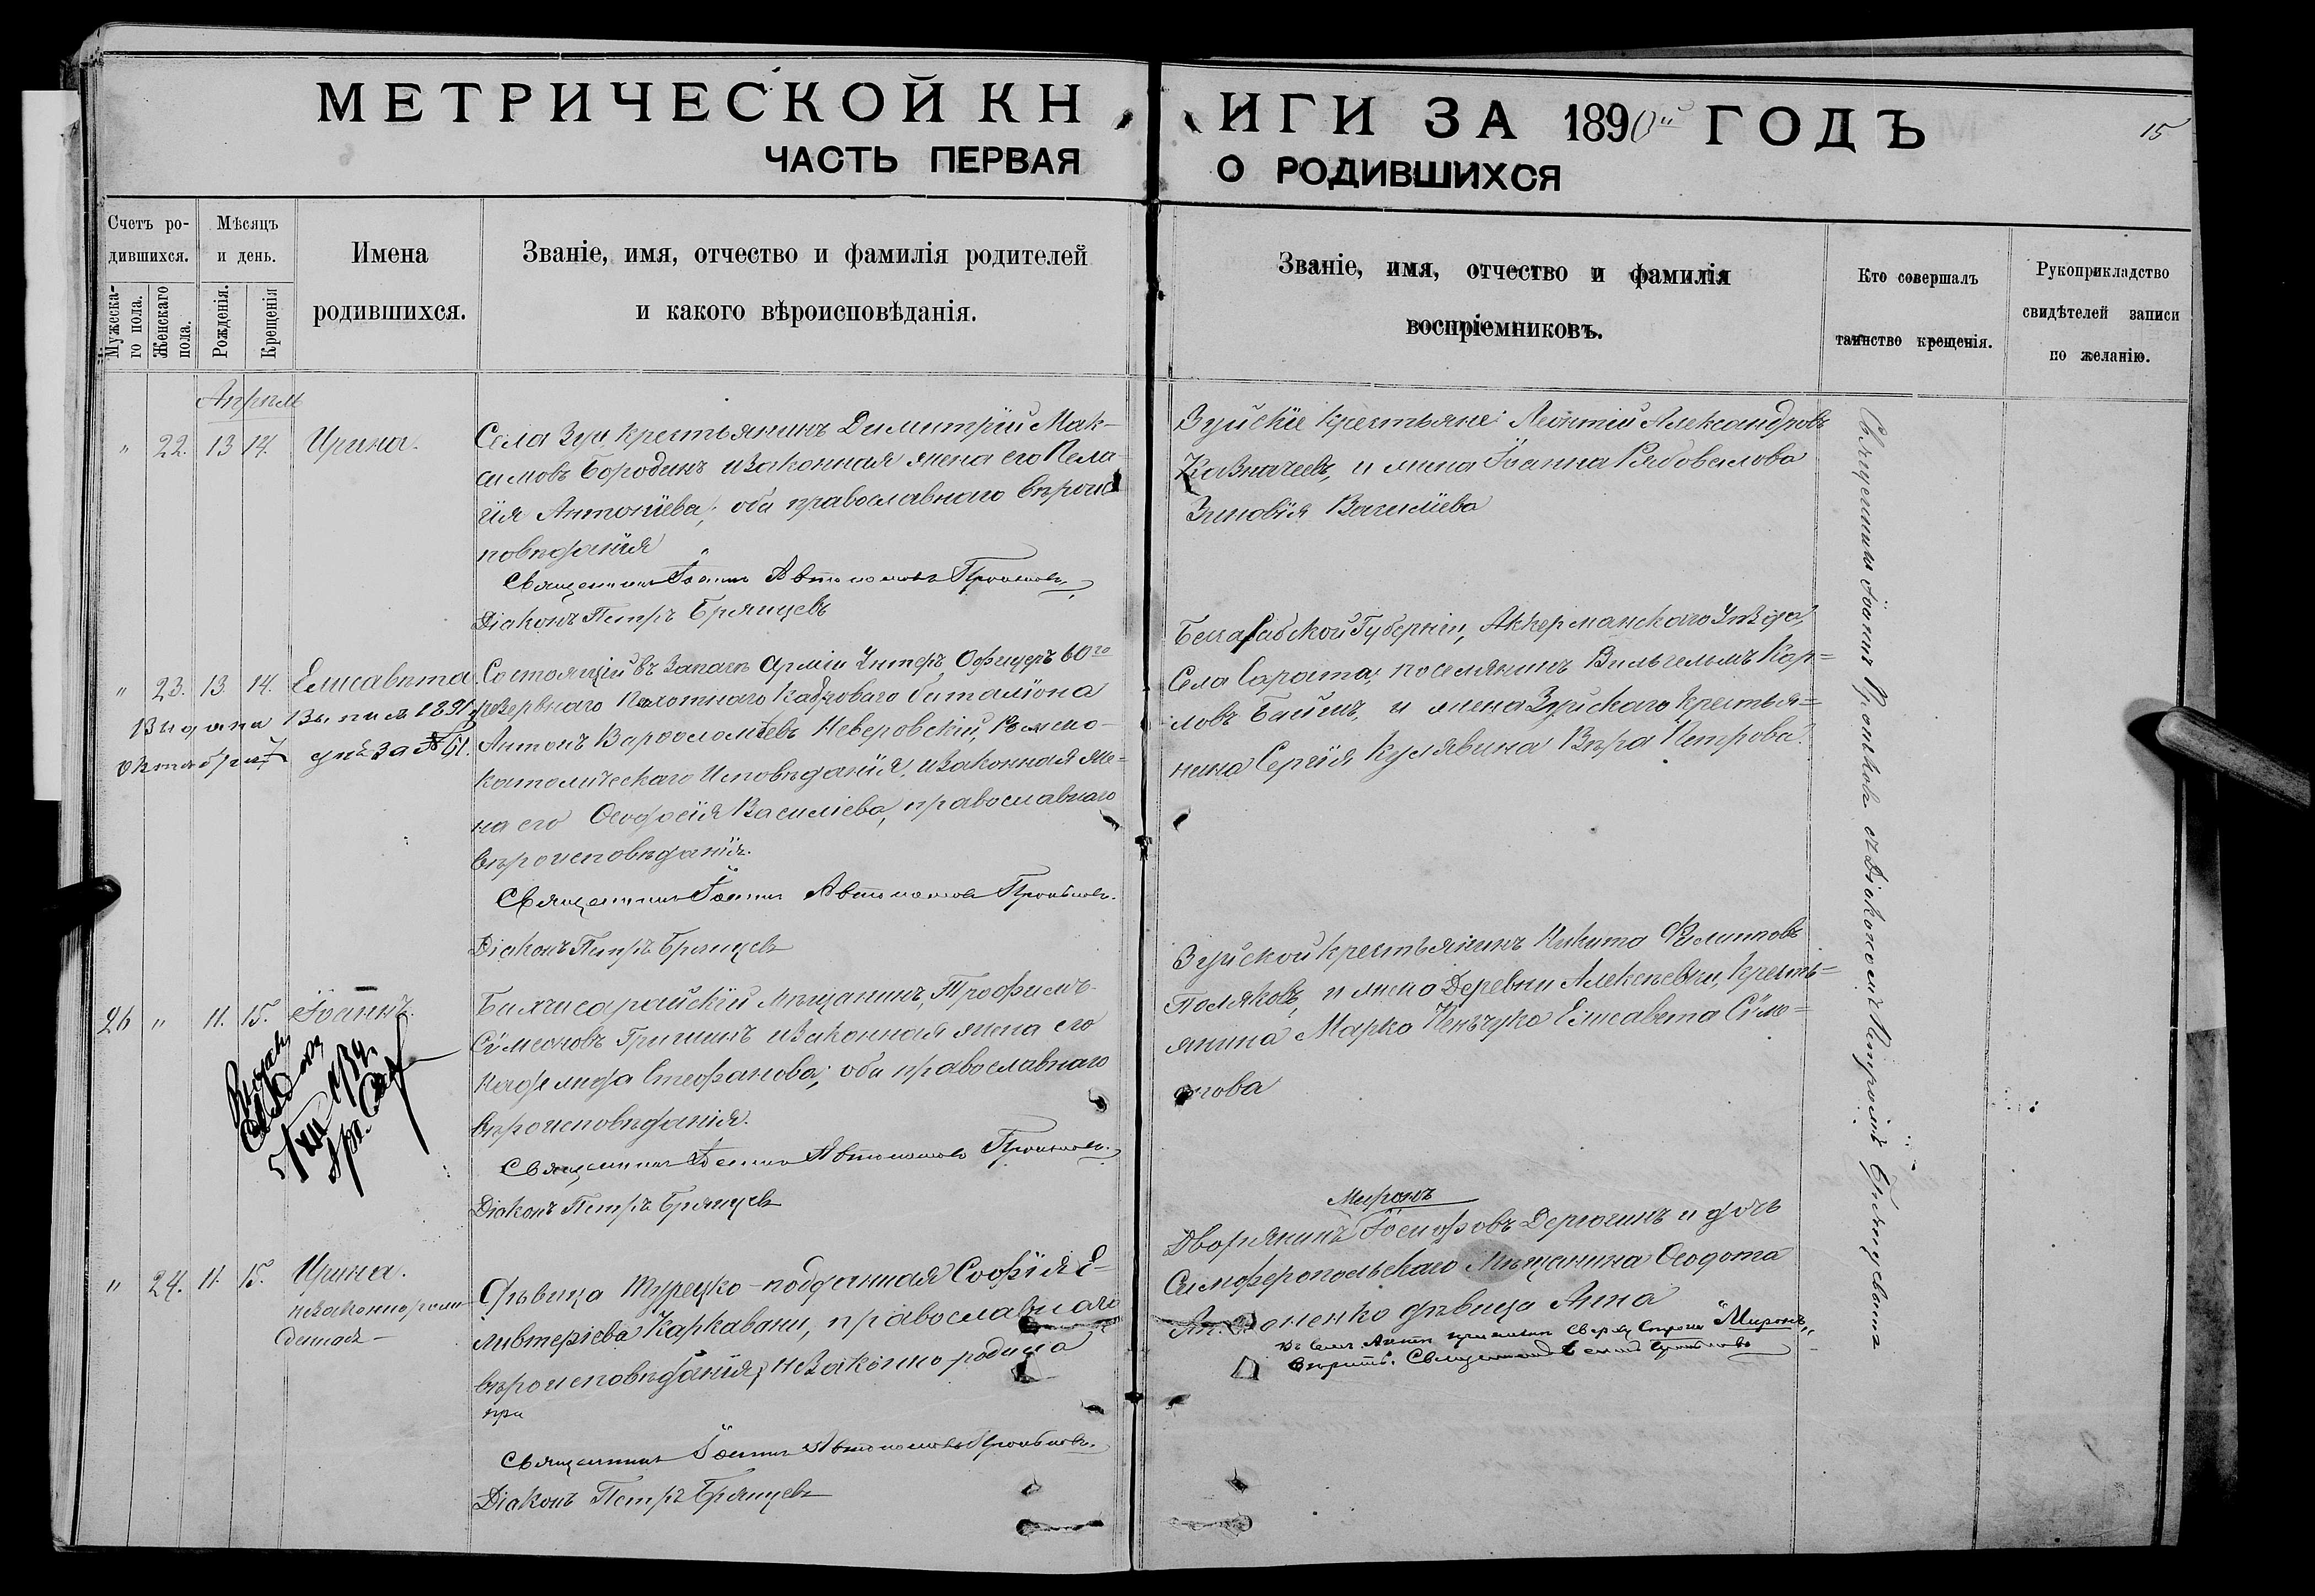 МЕТРИЧЕСКОЙ КН
ИГИ ЗА 1890й ГОДЪ
15
ЧАСТЬ ПЕРВАЯ
О РОДИВШИХСЯ
Счетъ ро-
дившихся.
Мужеска-
го пола.
Женскаго
пола.
Мѣсяцъ
и день.
Рожденія.
Крещенія
Имена
родившихся.
Званіе, имя, отчество и фамилія родителей
и какого вѣроисповѣданія.
Званіе, имя, отчество и фамилія
воспріемниковъ.
Кто совершалъ
таинство крещенія.
Рукоприкладство
свидѣтелей записи
по желанію.
Апрѣль
" 22. 13 14. Ирина.
Села Зуи крестьянинъ Димитрій Мак-
симовъ Бородинъ и законная жена его Пела
гія Антоніева; оба православнаго вѣроис
повѣданія
Священникъ Іоаннъ Автономовъ Проньковъ
Діаконъ Петръ Брянцевъ
Зуйскіе крестьяне: Леонтій Александровъ
Казначеевъ, и жена Іоанна Рябовалова
Зиновія Василіева
" 23. 13. 14. Елисавета
Выдана Выпись 1891 г.
октября 7 дня за № 61.
Состоящій въ запасѣ Арміи Унтеръ Офицеръ 60го
резервнаго Пехотнаго Кадроваго баталіона
Антонъ Варѳоломѣевъ Неверовскій, Римско-
католическаго Исповѣданія, и законная же-
на его Ѳеодосія Василіева, православнаго
вѣроисповѣданія.
Священникъ Іоаннъ Автономовъ Проньковъ.
Діаконъ Петръ Брянцевъ
Бессарабской Губерніи, Аккерманскаго Уѣзда,
Села Сарата, поселянинъ Вильгельмъ Кар=
ловъ Байшъ, и жена Зуйскаго крестья=
нина Сергія Кулявина Вѣра Петрова.
26 " 11. 15. Іоаннъ.
Бахчисарайскій Мѣщанинъ, Трофимъ
Сѵмеоновъ Гришинъ и законная жена его
Надежда Стефанова; оба православнаго
вѣроисповѣданія.
Священникъ Іоаннъ Автономовъ Проньковъ.
Діаконъ Петръ Брянцевъ
Зуйской крестьянинъ Никита Филиповъ
Поляковъ, и жена Деревни Алексѣевки, кресть=
янина Марка Кенчука Елисавета Сѵме=
онова
" 24. 11. 15. Ирина.
незаконнорож
денная
Дѣвица Турецко-подданная Софія Е=
ливтеріева Каркавани, православнаго
вѣроисповѣданія, незаконно родила
при
Священникъ Іоаннъ Автономовъ Проньковъ.
Діаконъ Петръ Брянцевъ
Миронъ
Дворянинъ Іосифовъ Дерюгинъ и дочь
Симферопольскаго Мѣщанина Ѳеодота
дѣвица Анна
Въ семъ Актѣ сверху строки "Миронъ"
вѣрить. Священникъ Іоаннъ Проньковъ
Священникъ Іоаннъ Проньковъ съ Діакономъ Петромъ Брянцевымъ